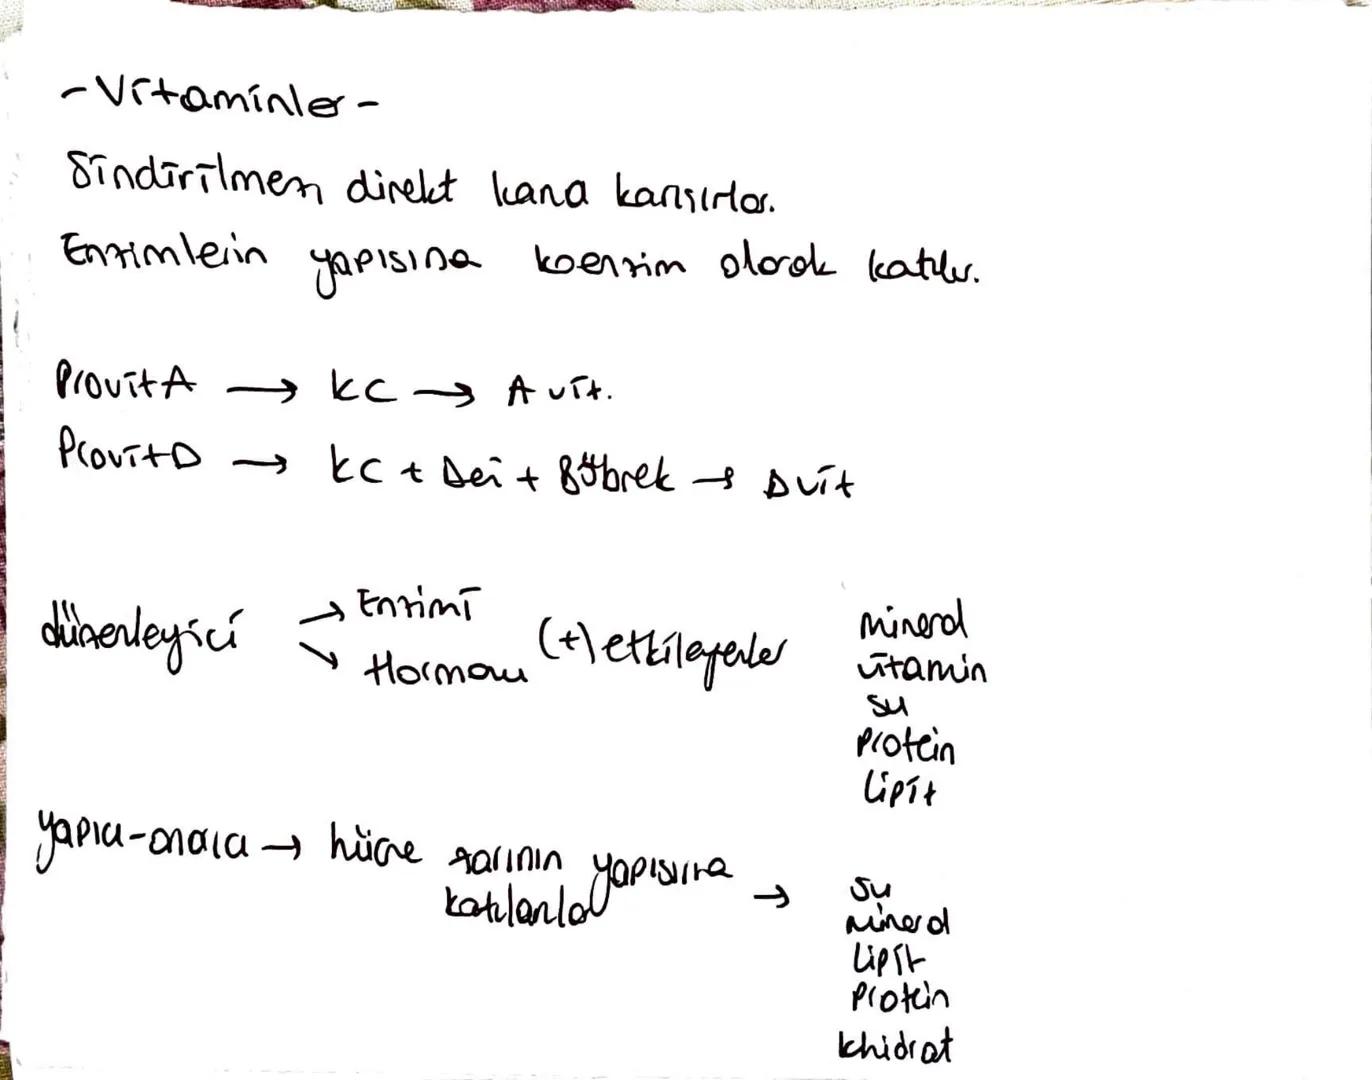 - Vitaminler -
Sindirilmen direkt kana karışırlar.
Enzimlerin yapısına koenzim olarak katılır.
ProvitA → KC → A vit.
ProvitD → KC + Deri + Böbrek → D vit
düzenleyici → Enzimi
→ Hormonu
(+) etkileyenler
mineral
vitamin
su
protein
lipit
yapıcı-onarıcı → hücre zarının yapısına
katılanlar
→ su
mineral
lipit
protein
khidrat